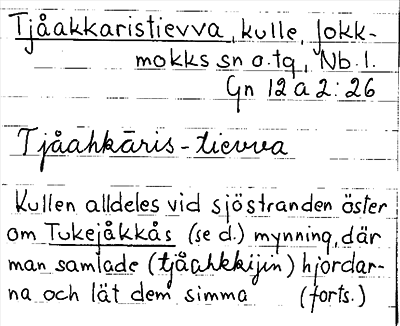 Tjåakkaristievva, kulle, Jokk-
mokks sn o.tg, Nb.l.
Gn 12 a 2:26
Tjåahkāris-tievva
Kullen alldeles vid sjöstranden öster
om Tukejåkkås (se d.) mynning, där
man samlade (tjåahkkijin) hjordar-
na och lät dem simma (forts.)